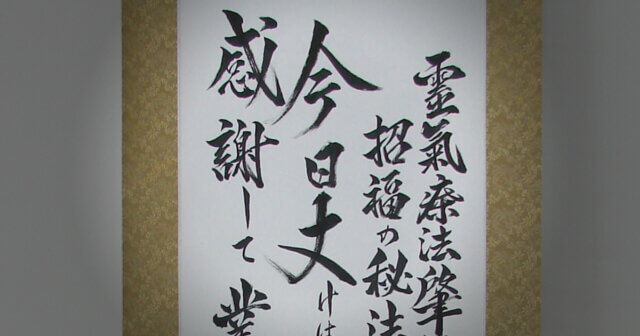 靈氣療法肇
招福の秘法
今日丈けは
感謝して業